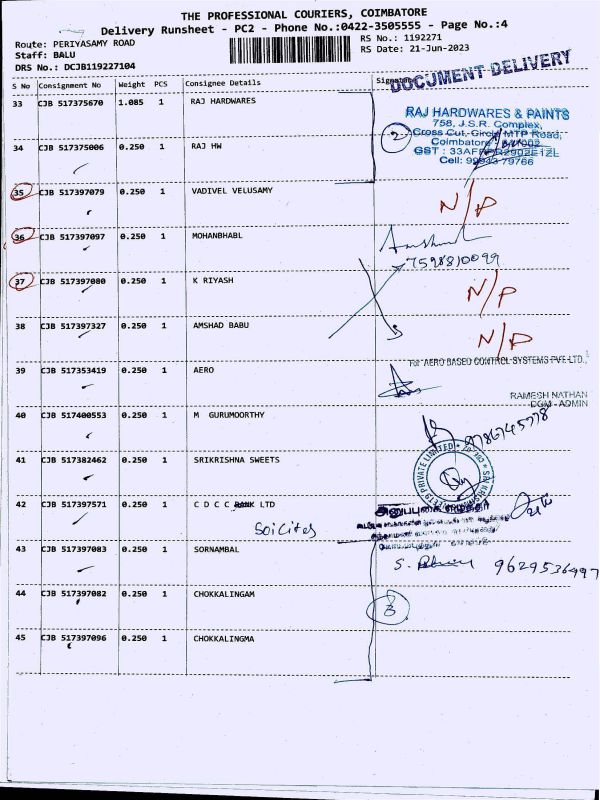 THE PROFESSIONAL COURIERS, COIMBATORE
Delivery Runsheet - PC2 - Phone No.:0422-3505555 - Page No.:4
Route: PERIYASAMY ROAD
RS No.: 1192271
Staff: BALU
RS Date: 21-Jun-2023
DRS No.: DCJB119227104
DOCUMENT DELIVERY
S No Consignment No Weight PCS Consignee Details Signature
33 CJB 517375670 1.085 1 RAJ HARDWARES
RAJ HARDWARES & PAINTS
758, J.S.R. Complex,
Cross Cut, Circle MTP Road,
Coimbatore
2
Cell: 99943 79766
34 CJB 517375006 0.250 1 RAJ HW
35 CJB 517397079 0.250 1 VADIVEL VELUSAMY N/P
36 CJB 517397097 0.250 1 MOHANBHABL
7598810099
37 CJB 517397080 0.250 1 K RIYASH N/P
38 CJB 517397327 0.250 1 AMSHAD BABU N/P
For AERO BASED CONTROL SYSTEMS PVT. LTD.,
39 CJB 517353419 0.250 1 AERO
RAMESH NATHAN
DGM - ADMIN
40 CJB 517400553 0.250 1 M GURUMOORTHY 9786745778
41 CJB 517382462 0.250 1 SRIKRISHNA SWEETS
42 CJB 517397571 0.250 1 C D C C BANK LTD
Soicites
43 CJB 517397083 0.250 1 SORNAMBAL
9629536997
44 CJB 517397082 0.250 1 CHOKKALINGAM
3
45 CJB 517397096 0.250 1 CHOKKALINGMA